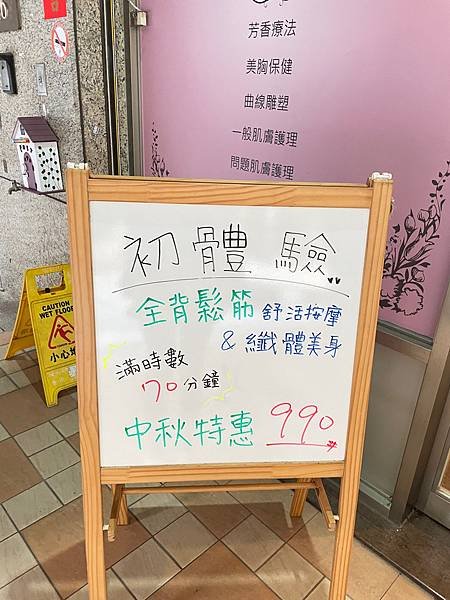 芳香療法
美胸保健
曲線雕塑
一般肌膚護理
問題肌膚護理
初體驗
全背鬆筋 舒活按摩
& 纖體美身
滿時數
70分鐘
中秋特惠 990
CAUTION
WET FLOOR
小心地